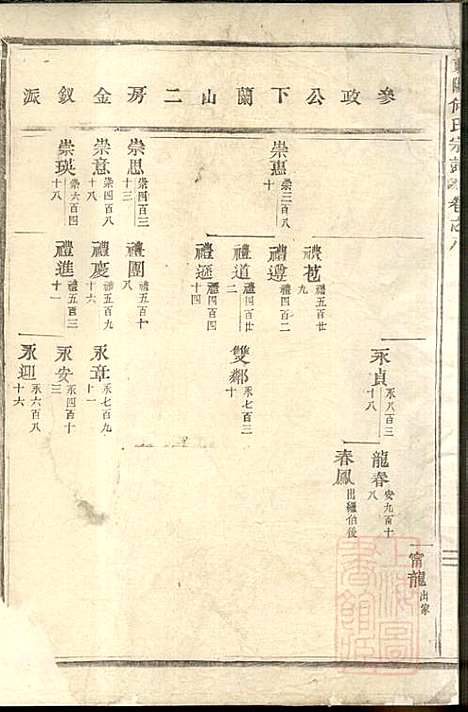 參政公下蘭山二房金釵派
何氏宗譜
卷之八
崇惠 崇三百八十
崇思 崇四百三十三
崇意 崇四百八十八
崇瑛 崇六百四十八
禮苞 禮五百廿九
禮遵 禮四百二
禮道 禮四百廿二
禮遜 禮四百廿十四
禮圑 禮五百十八
禮慶 禮五百九十六
禮進 禮五百三十一
永貞 永八百三十八
雙鄰 永七百三十
永章 永七百九十一
永安 永四百十三
永迎 永六百八十六
龍春 安九百十八
春鳳 出繼伯後
甯龍 出家
上海圖書館藏